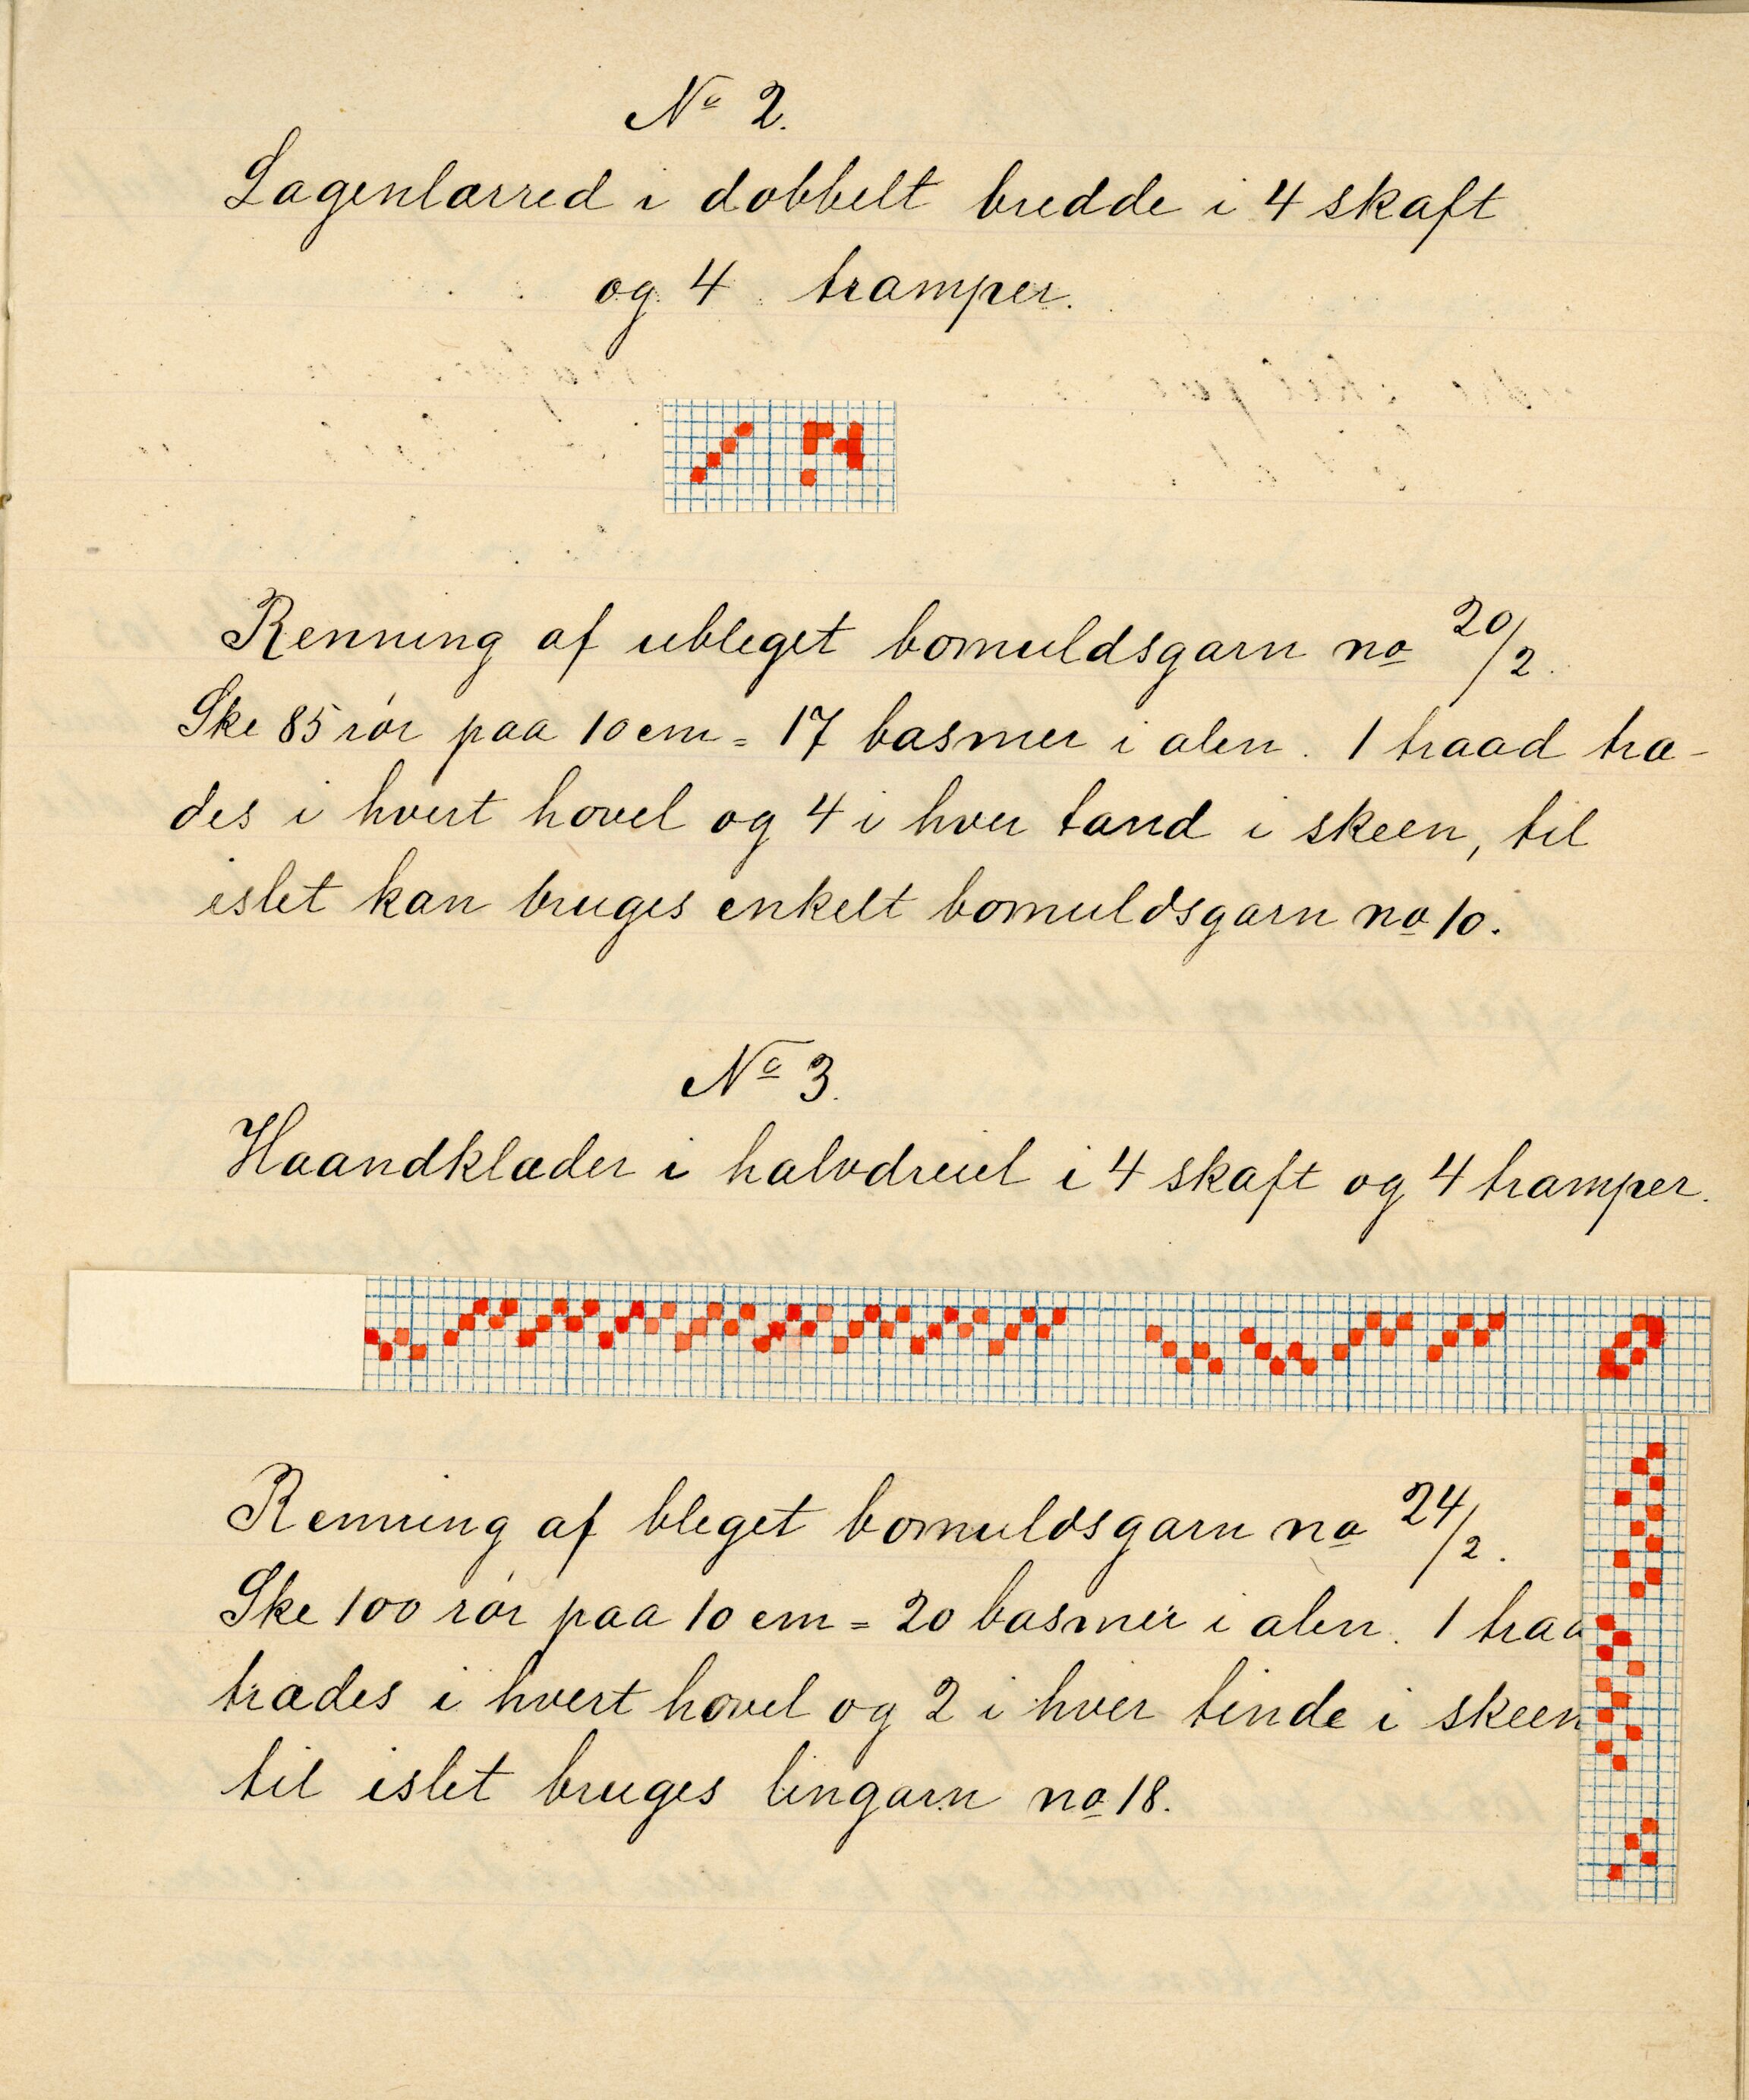 No 2.
Lagenlærred i dobbelt bredde i 4 skaft
og 4 tramper.
Renning af ubleget bomuldsgarn no 20/2.
Ske 85 rör paa 10 cm = 17 basmer i alen. 1 traad træ-
des i hvert hovel og 4 i hver tand i skeen, til
islet kan bruges enkelt bomuldsgarn no 10.
No 3.
Haandklæder i halvdreiel i 4 skaft og 4 tramper.
Renning af bleget bomuldsgarn no 24/2.
Ske 100 rör paa 10 cm = 20 basmer i alen. 1 traa
trædes i hvert hovel og 2 i hver tinde i skeen
til islet bruges lingarn no 18.